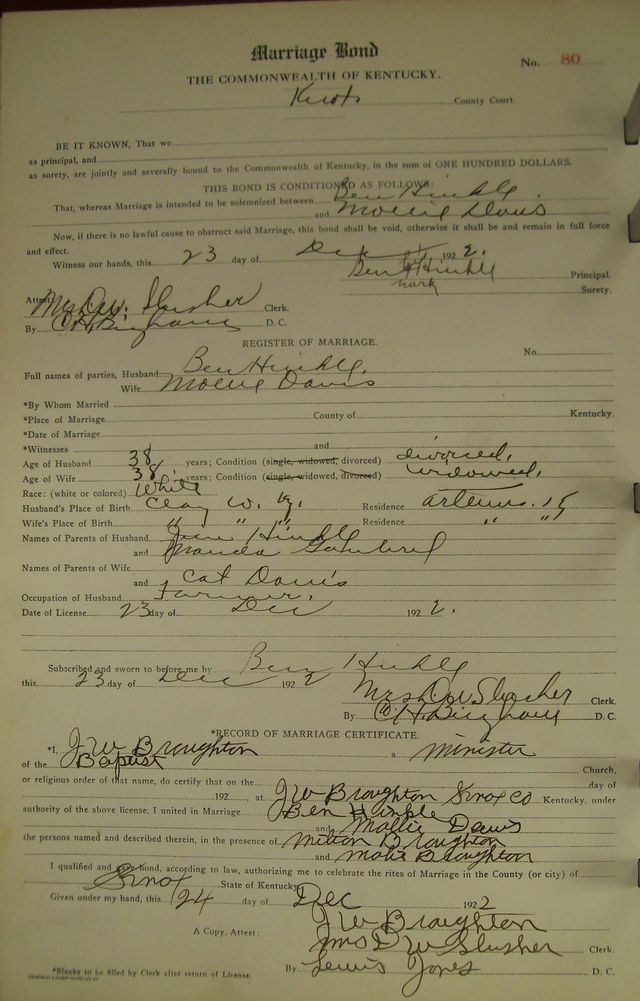 Marriage Bond
No. 80
THE COMMONWEALTH OF KENTUCKY.
Knox County Court.
BE IT KNOWN, That we
as principal, and
as surety, are jointly and severally bound to the Commonwealth of Kentucky, in the sum of ONE HUNDRED DOLLARS.
THIS BOND IS CONDITIONED AS FOLLOWS:
That, whereas Marriage is intended to be solemnized between Ben Hinkle.
and Mollie Davis
Now, if there is no lawful cause to obstruct said Marriage, this bond shall be void, otherwise it shall be and remain in full force
and effect.
Witness our hands, this 23 day of Dec 1922.
Ben Hinkle Principal.
mark Surety.
Attest Mrs D.W. Slusher Clerk.
By C H Bingham D. C.
REGISTER OF MARRIAGE.
No.
Full names of parties, Husband Ben Hinkle.
Wife Mollie Davis
*By Whom Married
*Place of Marriage County of Kentucky.
*Date of Marriage
*Witnesses and
Age of Husband 38 years; Condition (single, widowed, divorced) divorced.
Age of Wife 38 years; Condition (single, widowed, divorced) widowed.
Race: (white or colored) White
Husband's Place of Birth Clay Co. Ky. Residence Artemus. Ky
Wife's Place of Birth " " " Residence " "
Names of Parents of Husband Hinkle
and
Names of Parents of Wife
and Cat Davis
Occupation of Husband Farmer.
Date of License 23 day of Dec 1922.
Subscribed and sworn to before me by Ben Hinkle
this 23 day of Dec 1922
Mrs D W Slusher Clerk.
By C H Bingham D. C.
*RECORD OF MARRIAGE CERTIFICATE.
*I, J W Broughton a minister
of the Baptist Church,
or religious order of that name, do certify that on the day of
192 , at J W Broughton Knox Co Kentucky, under
authority of the above license, I united in Marriage Ben Hinkle
and Mollie Davis
the persons named and described therein, in the presence of Milton Broughton
and Matie Broughton
I qualified and gave bond, according to law, authorizing me to celebrate the rites of Marriage in the County (or city) of
Knox State of Kentucky
Given under my hand, this 24 day of Dec 1922
J W Broughton
A Copy, Attest: Mrs D W Slusher Clerk.
By Lewis Jones D. C.
*Blanks to be filled by Clerk after return of License.